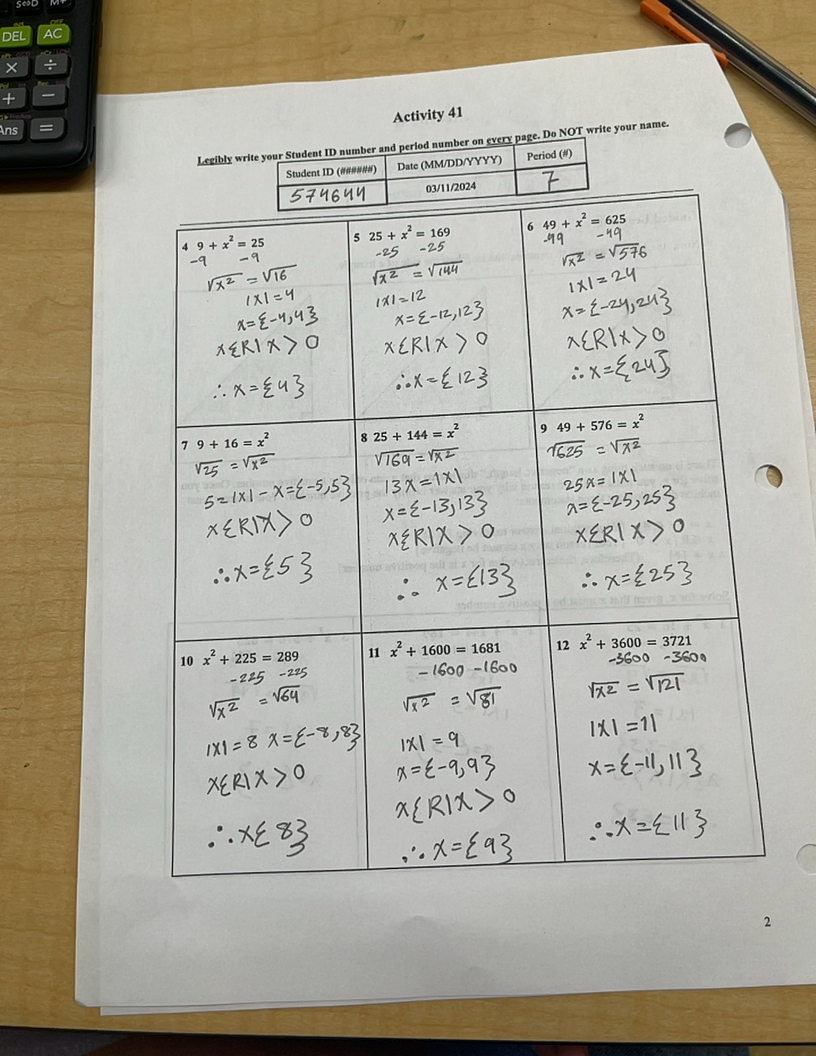 S⇔D
M+
DEL
AC
×
÷
+
−
Ans
=
Activity 41
Legibly write your Student ID number and period number on every page. Do NOT write your name.
Student ID (######)
Date (MM/DD/YYYY)
Period (#)
574644
03/11/2024
7
4 9 + x² = 25
-9 -9
√x² = √16
|x| = 4
x = {-4,4}
x{R|x > 0
∴ x = {4}
5 25 + x² = 169
-25 -25
√x² = √144
|x| = 12
x = {-12,12}
x{R|x > 0
∴ x = {12}
6 49 + x² = 625
-49 -49
√x² = √576
|x| = 24
x = {-24,24}
x{R|x > 0
∴ x = {24}
7 9 + 16 = x²
√25 = √x²
5 = |x| - x = {-5,5}
x{R|x > 0
∴ x = {5}
8 25 + 144 = x²
√169 = √x²
13x = |x|
x = {-13,13}
x{R|x > 0
∴ x = {13}
9 49 + 576 = x²
√625 = √x²
25x = |x|
x = {-25,25}
x{R|x > 0
∴ x = {25}
10 x² + 225 = 289
-225 -225
√x² = √64
|x| = 8 x = {-8,8}
x{R|x > 0
∴ x{8}
11 x² + 1600 = 1681
-1600 -1600
√x² = √81
|x| = 9
x = {-9,9}
x{R|x > 0
∴ x = {9}
12 x² + 3600 = 3721
-3600 -3600
√x² = √121
|x| = 11
x = {-11,11}
∴ x = {11}
2